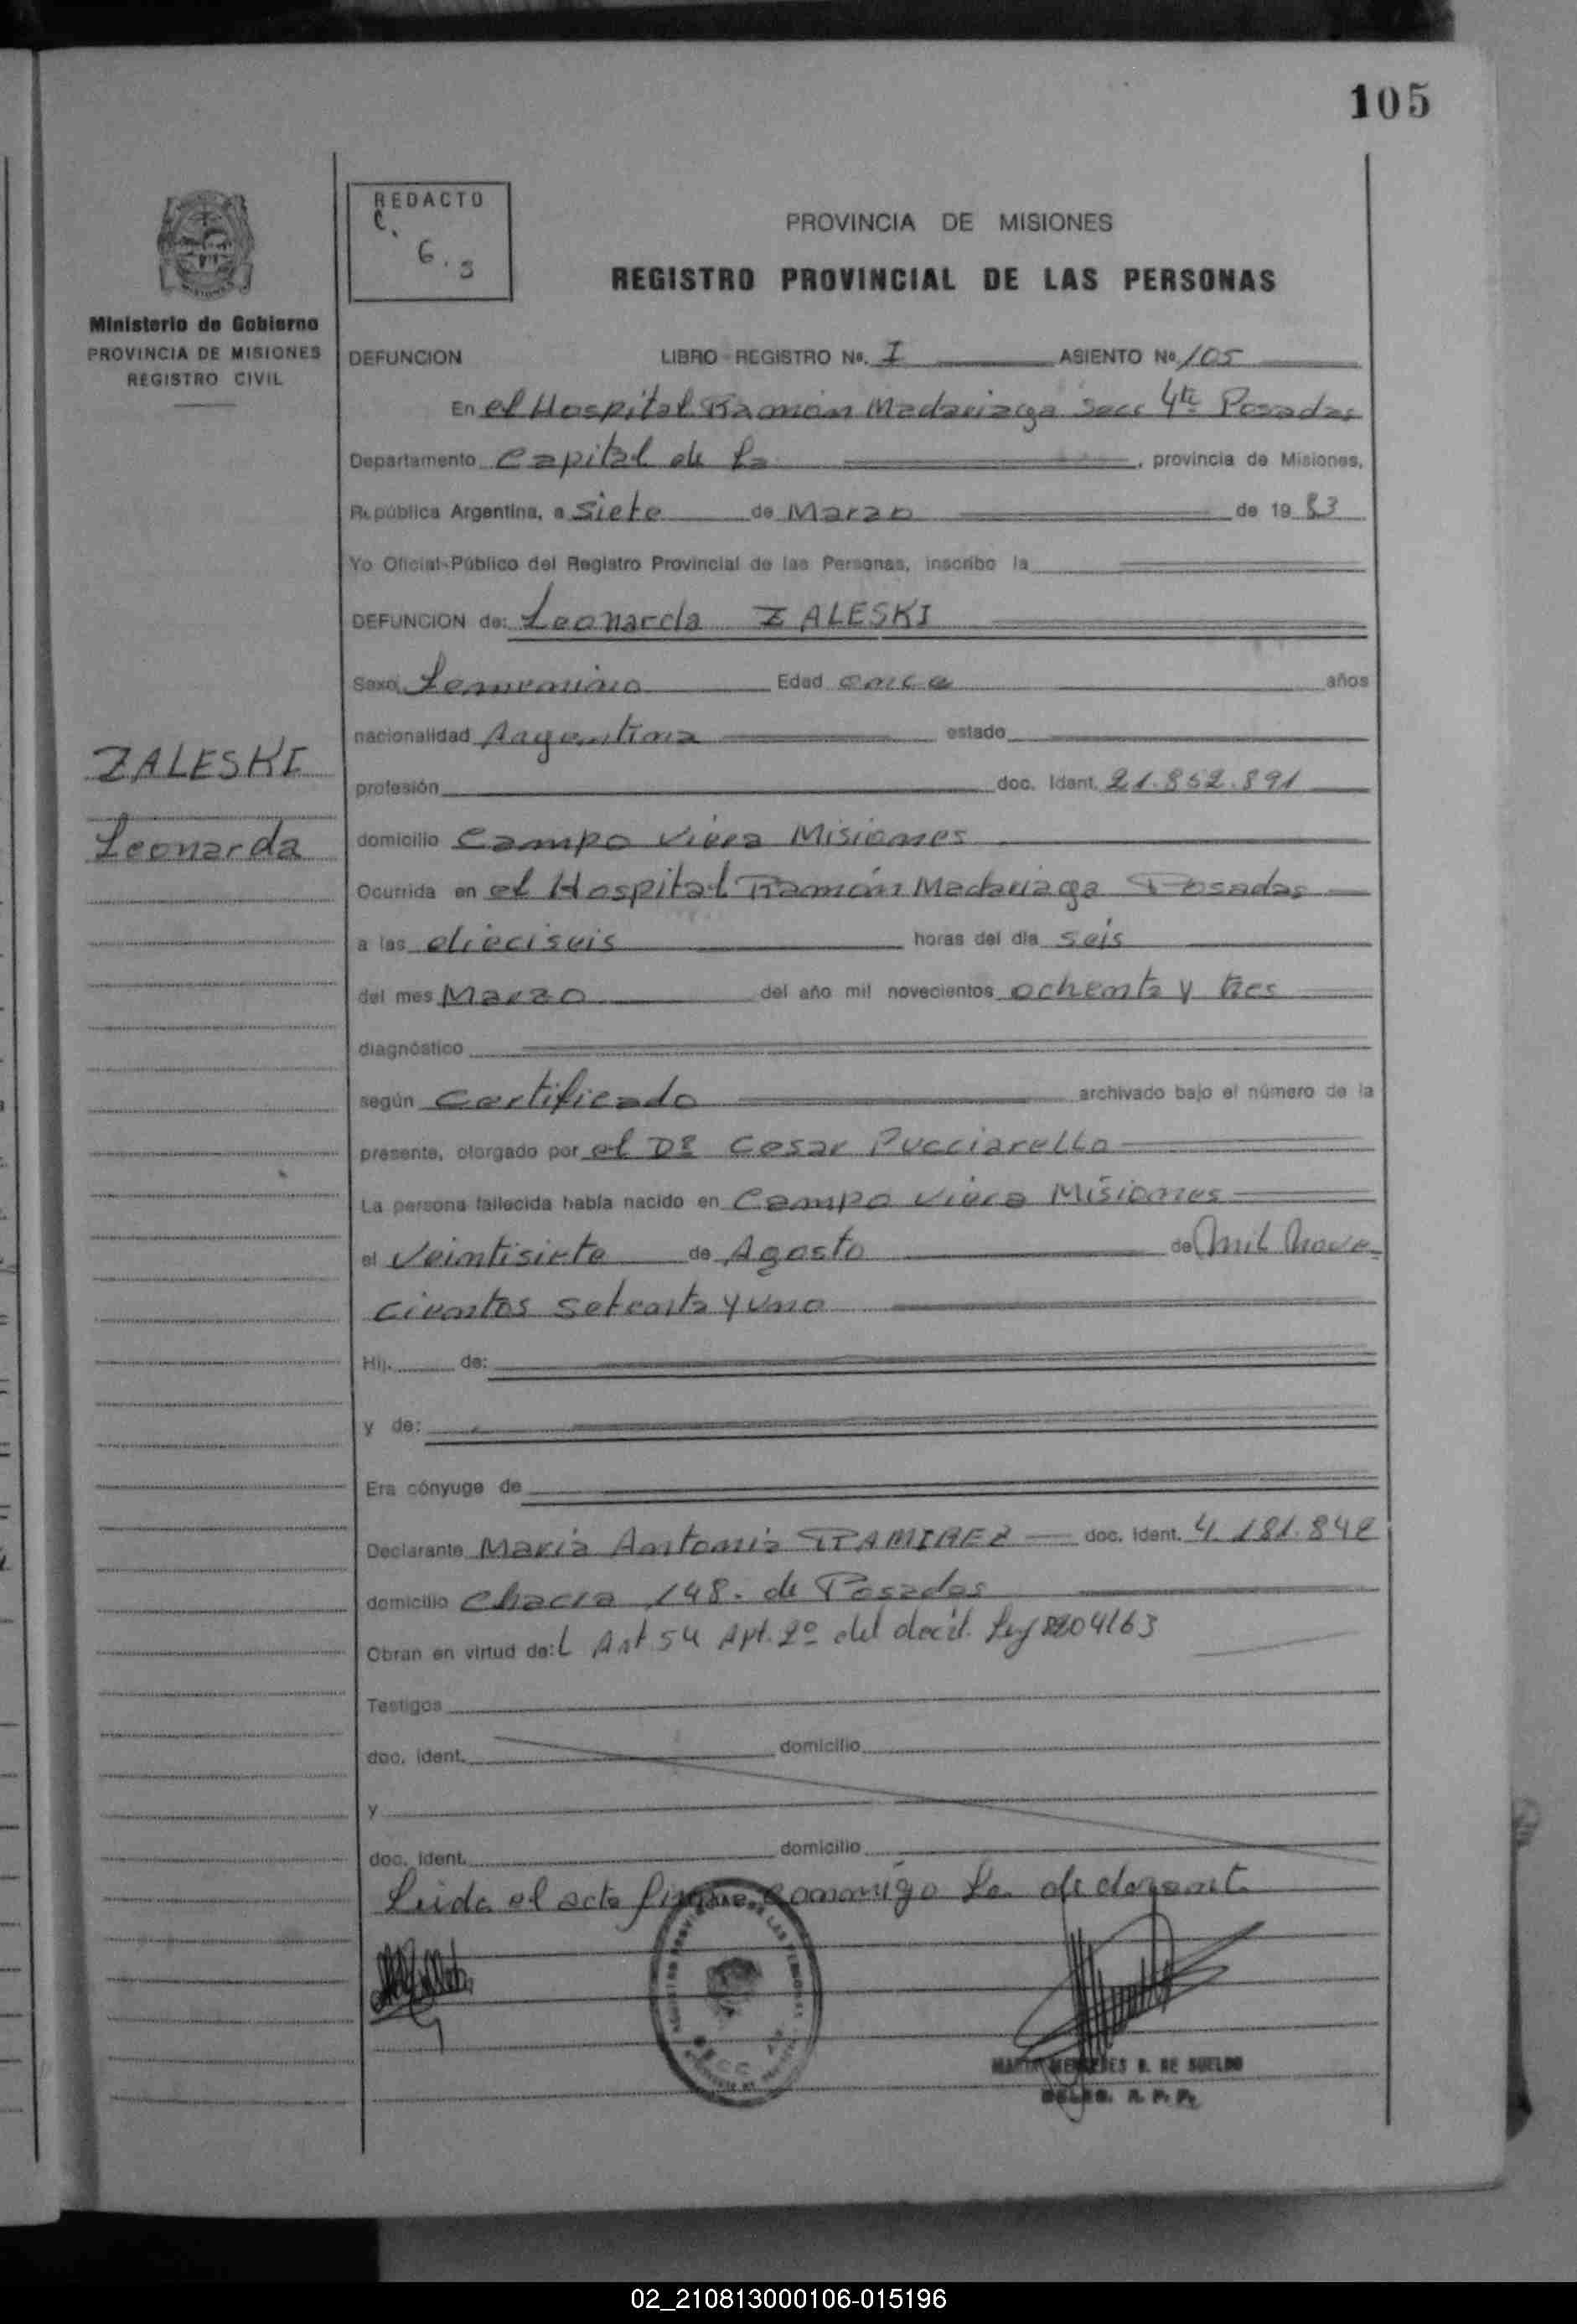 105
REDACTO
C.
6. s
PROVINCIA DE MISIONES
REGISTRO PROVINCIAL DE LAS PERSONAS
Ministerio de Gobierno
PROVINCIA DE MISIONES
REGISTRO CIVIL
DEFUNCION LIBRO REGISTRO No. I ASIENTO No 105
En el Hospital Ramón Madariaga Secc 4ta Posadas
Departamento Capital de la , provincia de Misiones,
República Argentina, a Siete de Marzo de 19 83
Yo Oficial Público del Registro Provincial de las Personas, inscribo la
DEFUNCION de: Leonarda ZALESKI
Sexo Femenino Edad once años
nacionalidad Argentina estado
profesión doc. Ident. 21.852.891
domicilio Campo Viera Misiones
Ocurrida en el Hospital Ramón Madariaga Posadas
a las dieciseis horas del día seis
del mes Marzo del año mil novecientos ochenta y tres
diagnóstico
según Certificado archivado bajo el número de la
presente, otorgado por el Dr Cesar Pucciarello
La persona fallecida había nacido en Campo Viera Misiones
el Veintisiete de Agosto de Mil Nove
cientos setenta y uno
Hij. de:
y de:
Era cónyuge de
Declarante María Antonia RAMIREZ doc. Ident. 4.181.842
domicilio Chacra 148. de Posadas
Obran en virtud de: l Art 54 Apt. 2º del dec'd. Ley 8204/63
Testigos
doc. Ident. domicilio
y
doc. Ident. domicilio
Leida el acta firma conmigo la declarante
ZALESKI
Leonarda
MARIA MERCEDES R. DE SUELDO
DELEG. R. P. P.
02_210813000106-015196